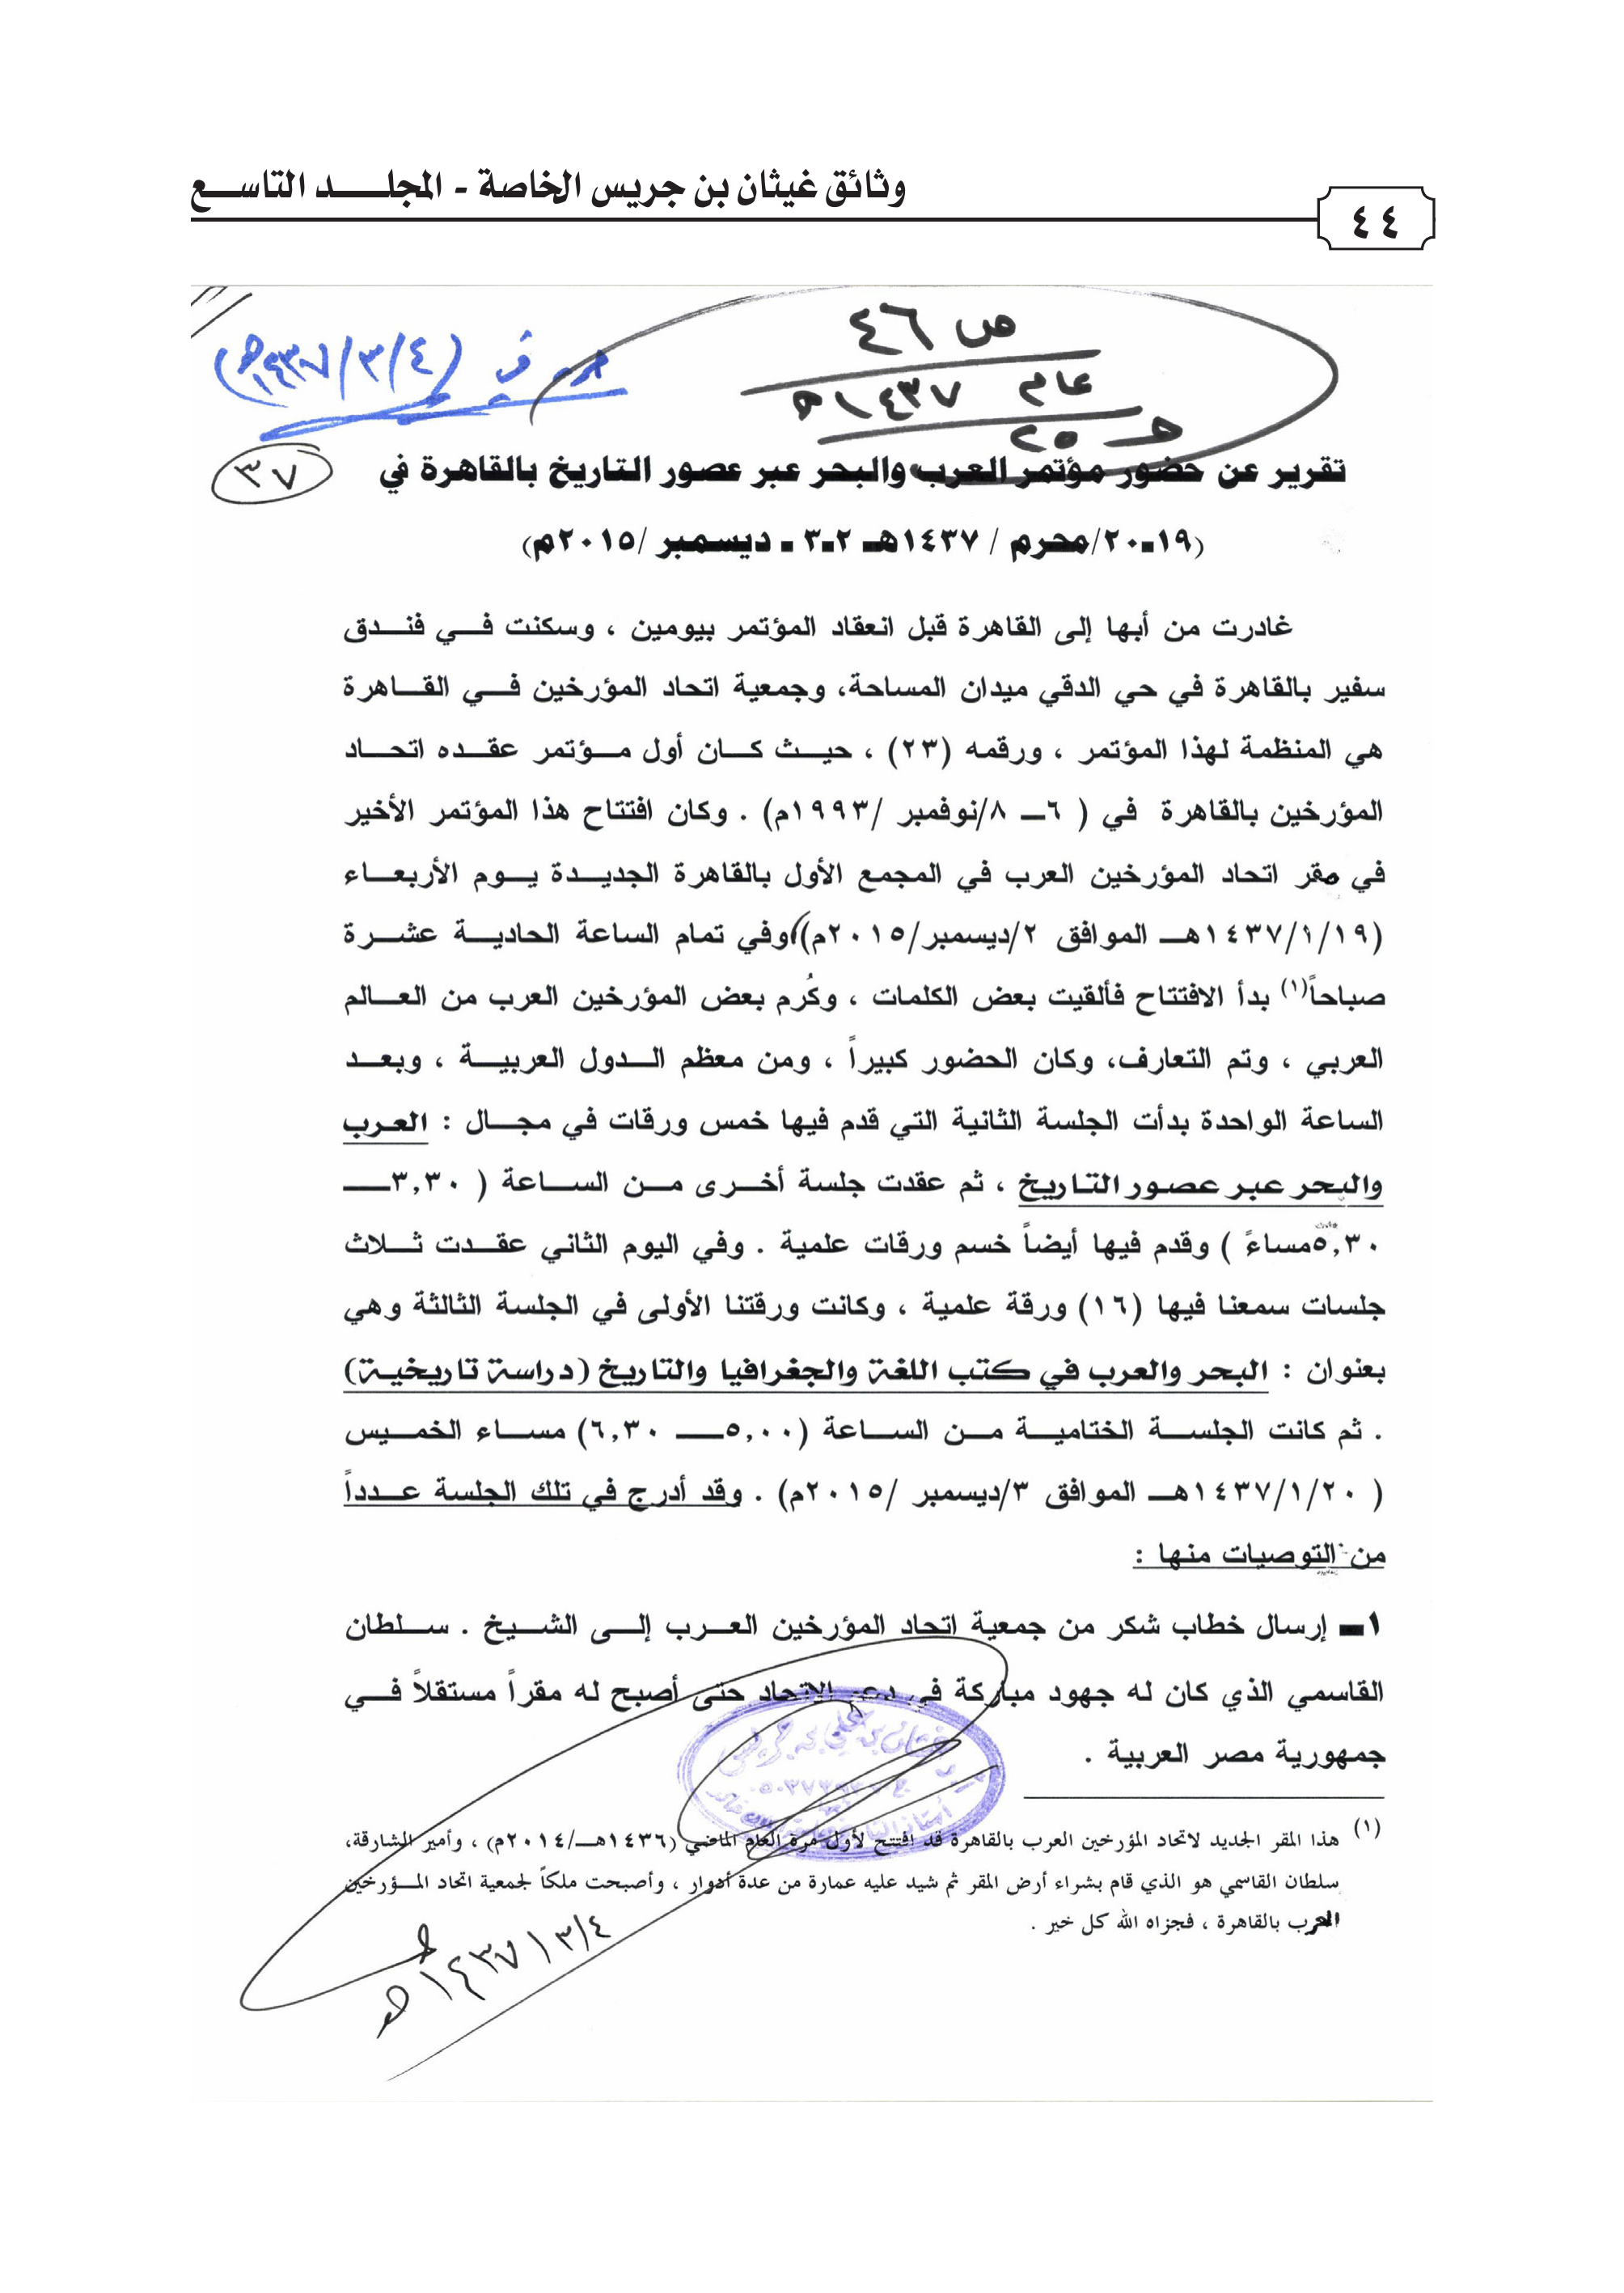 وثائق غيثان بن جريس الخاصة - المجلــــد التاســـع
٤٤
ص ٤٦
عام ١٤٣٧هـ
حـ ٢٥
في (١٤٣٧/٣/٤هـ)
٣٧
تقرير عن حضور مؤتمر العرب والبحر عبر عصور التاريخ بالقاهرة في
(١٩-٢٠/محرم / ١٤٣٧هـ ٢-٣ - ديسمبر /٢٠١٥م)
غادرت من أبها إلى القاهرة قبل انعقاد المؤتمر بيومين ، وسكنت فـــي فنـــدق
سفير بالقاهرة في حي الدقي ميدان المساحة، وجمعية اتحاد المؤرخين فـــي القـــاهرة
هي المنظمة لهذا المؤتمر ، ورقمه (٢٣) ، حيـــث كـــان أول مـــؤتمر عقـــده اتحـــاد
المؤرخين بالقاهرة في ( ٦ــ ٨/نوفمبر /١٩٩٣م) . وكان افتتاح هذا المؤتمر الأخير
في مقر اتحاد المؤرخين العرب في المجمع الأول بالقاهرة الجديـــدة يـــوم الأربعـــاء
(١٤٣٧/١/١٩هـــ الموافق ٢/ديسمبر/٢٠١٥م)(وفي تمام الساعة الحاديـــة عشـــرة
صباحاً(١) بدأ الافتتاح فألقيت بعض الكلمات ، وكُرم بعض المؤرخين العرب من العـــالم
العربي ، وتم التعارف، وكان الحضور كبيراً ، ومن معظم الـــدول العربيـــة ، وبعـــد
الساعة الواحدة بدأت الجلسة الثانية التي قدم فيها خمس ورقات في مجـــال : العـرب
والبحر عبر عصور التاريخ ، ثم عقدت جلسة أخـــرى مـــن الســـاعة ( ٣,٣٠ـــ
٥,٣٠مساءً ) وقدم فيها أيضاً خسم ورقات علمية . وفي اليوم الثاني عقـــدت ثـــلاث
جلسات سمعنا فيها (١٦) ورقة علمية ، وكانت ورقتنا الأولى في الجلسة الثالثة وهي
بعنوان : البحر والعرب في كتب اللغة والجغرافيا والتاريخ (دراسة تاريخية)
. ثم كانت الجلســـة الختاميـــة مـــن الســـاعة (٥,٠٠ـــ ٦,٣٠) مســـاء الخمـــيس
( ١٤٣٧/١/٢٠هـــ الموافق ٣/ديسمبر /٢٠١٥م) . وقد أدرج في تلك الجلسة عـــدداً
من التوصيات منها :
١ـ إرسال خطاب شكر من جمعية اتحاد المؤرخين العـــرب إلـــى الشـــيخ . ســـلطان
القاسمي الذي كان له جهود مباركة في دعم الاتحاد حتى أصبح له مقراً مستقلاً فـــي
جمهورية مصر العربية .
(١) هذا المقر الجديد لاتحاد المؤرخين العرب بالقاهرة قد افتتح لأول مرة العام الماضي (١٤٣٦هـــ/٢٠١٤م) ، وأمير الشارقة،
سلطان القاسمي هو الذي قام بشراء أرض المقر ثم شيد عليه عمارة من عدة أدوار ، وأصبحت ملكاً لجمعية اتحاد المـــؤرخين
العرب بالقاهرة ، فجزاه الله كل خير .
غيثان بن علي بن جريس
١٤٣٧/٣/٤هـ